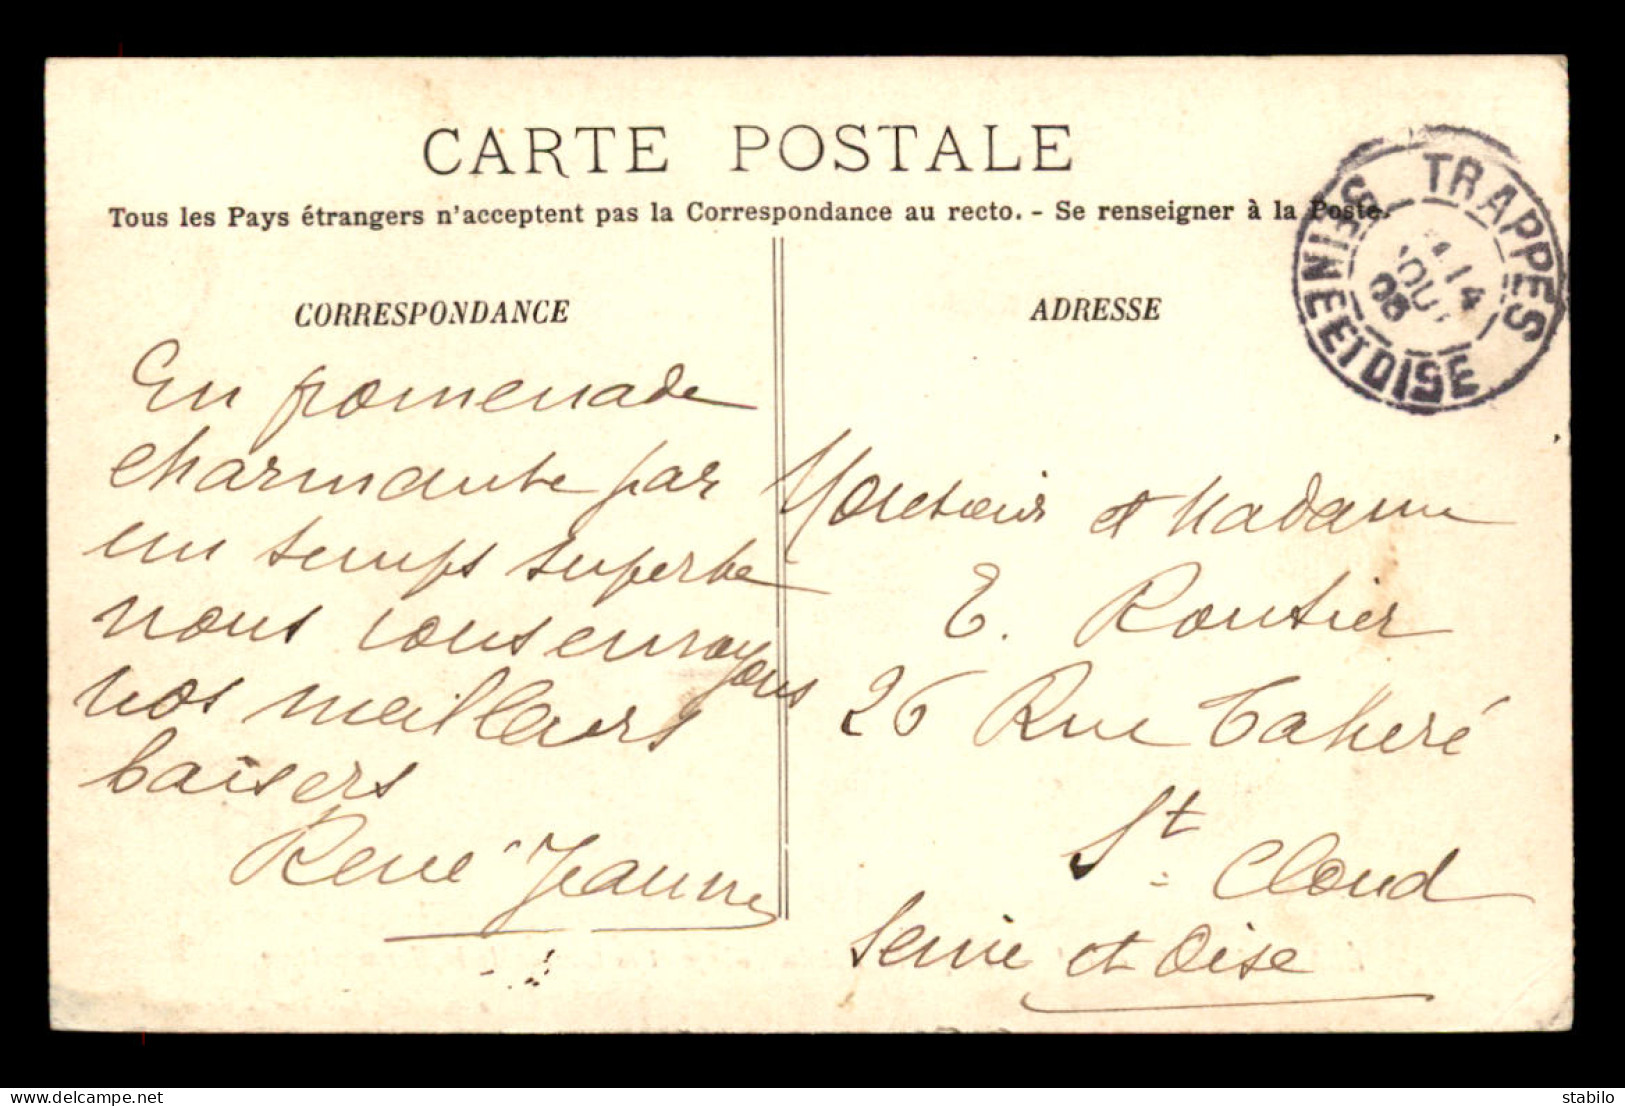 CARTE POSTALE
Tous les Pays étrangers n'acceptent pas la Correspondance au recto. - Se renseigner à la Poste.
TRAPPES
SEINE ET OISE
14
08
CORRESPONDANCE
En promenade
charmante par
un temps superbe
nous vous envoyons
nos meilleurs
baisers
René Jeanne
ADRESSE
Monsieur et Madame
E. Routier
26 Rue Tahéré
St Cloud
Seine et Oise
delcampe.net
stabilo